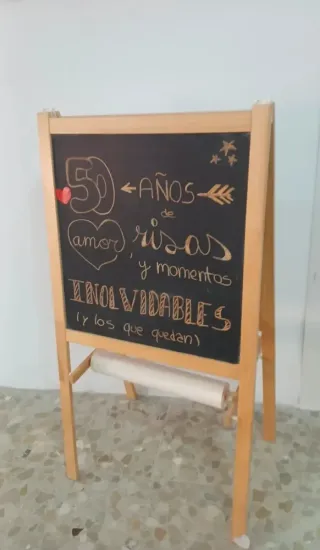 50 AÑOS
de
amor, risas
y momentos
INOLVIDABLES
(y los que quedan)